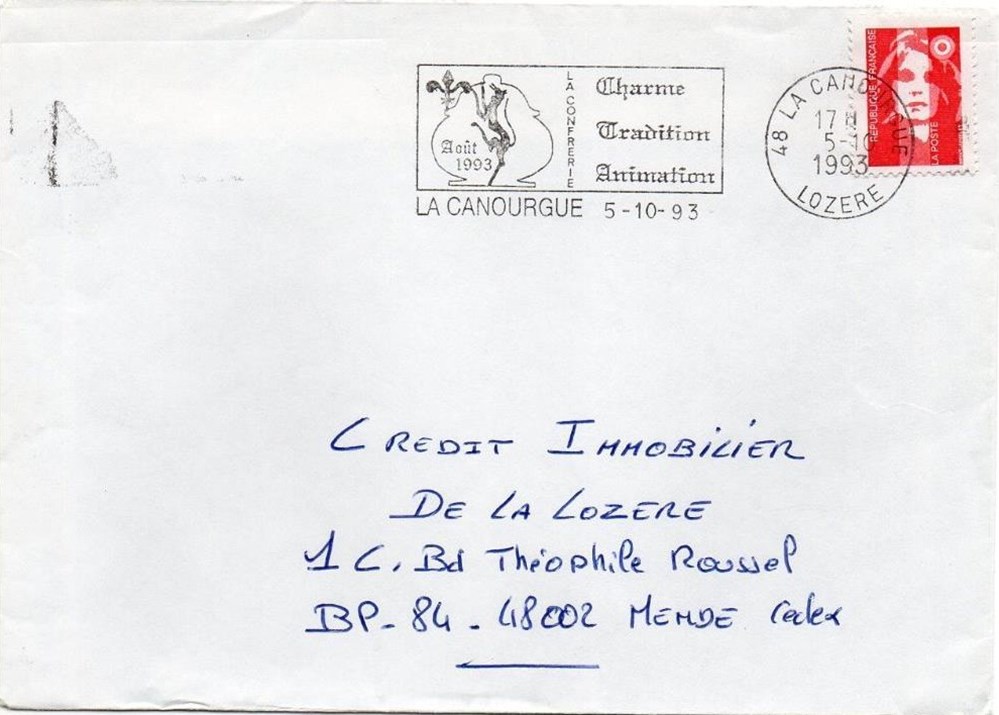 Août
1993
LA CONFRERIE
Charme
Tradition
Animation
LA CANOURGUE 5-10-93
48 LA CANOURGUE
17 H
5-10
1993
LOZERE
REPUBLIQUE FRANÇAISE
LA POSTE
CREDIT IMMOBILIER
DE LA LOZERE
1 C. Bd Théophile Roussel
BP. 84 - 48002 MENDE Cedex